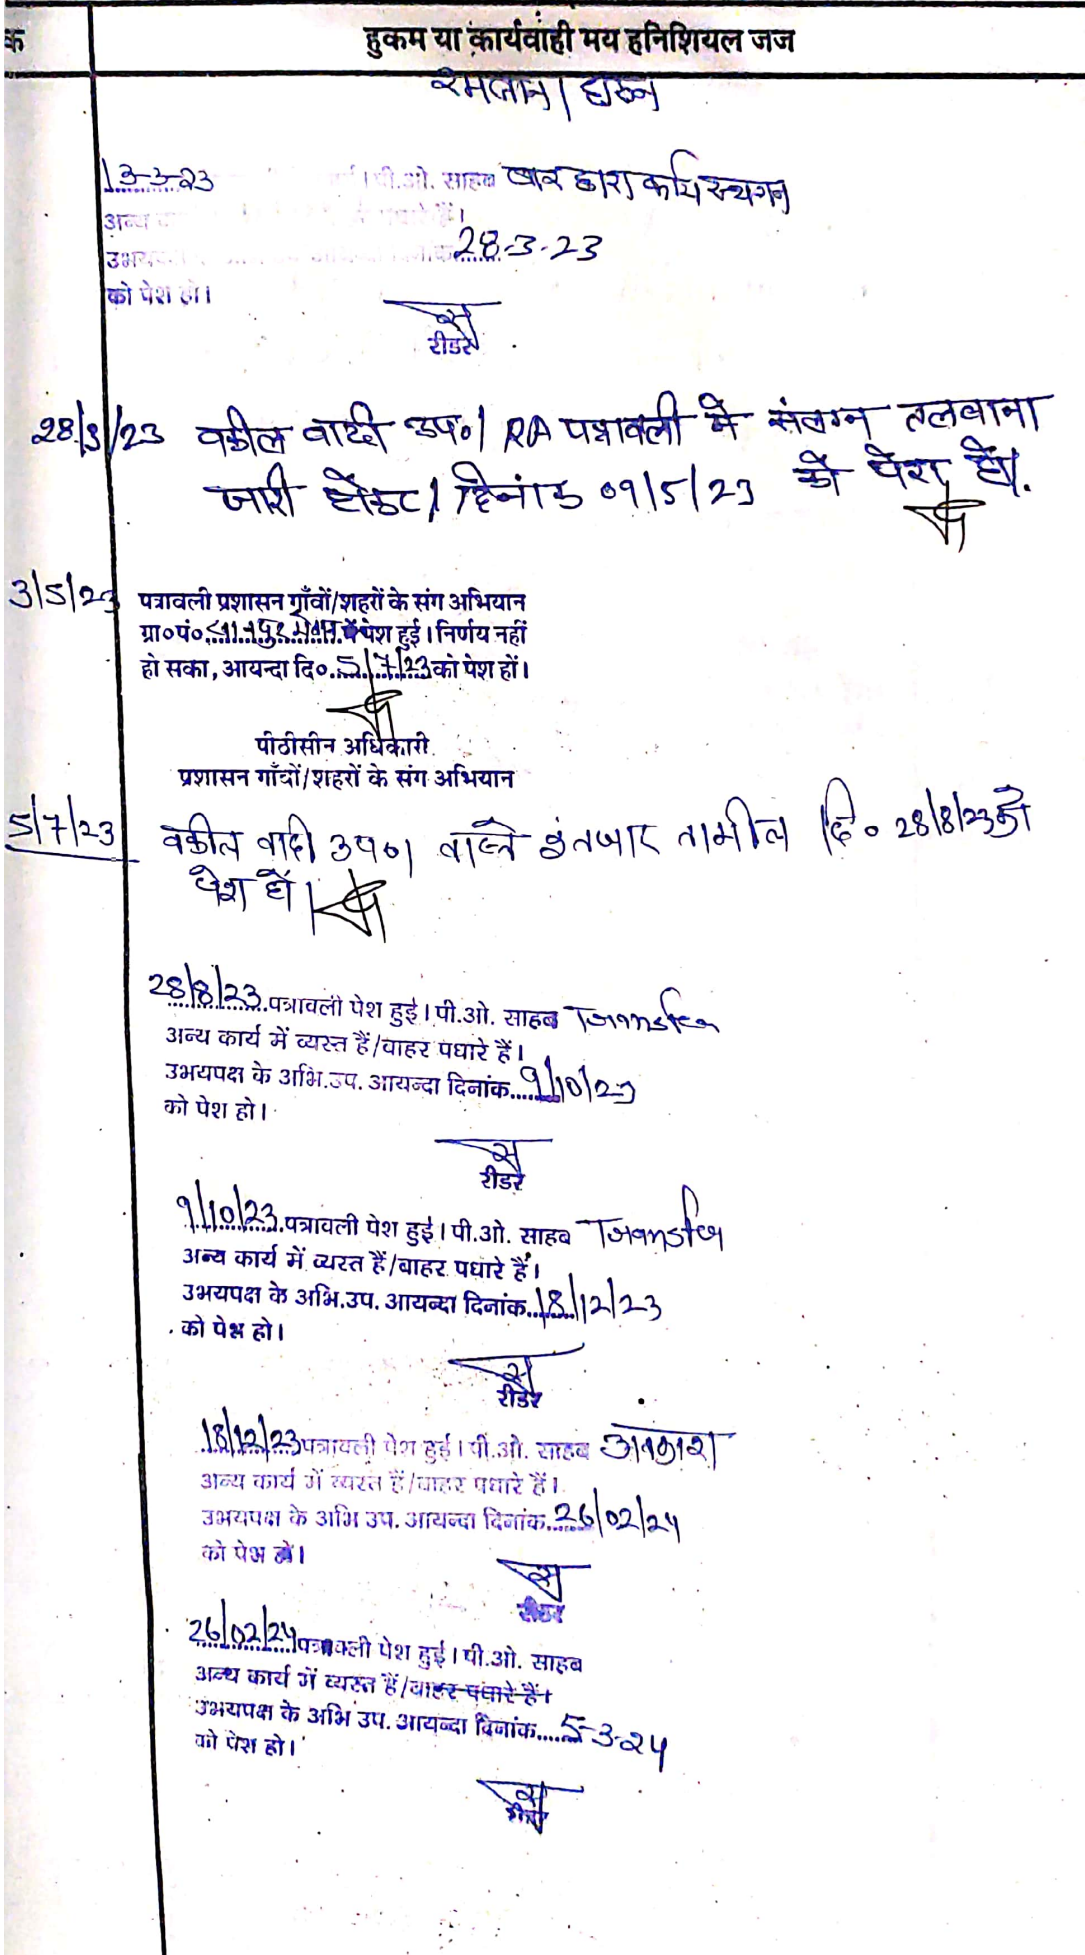 क
हुकम या कार्यवाही मय हनिशियल जज
रमजान / हारुन
13-3-23 पी.ओ. साहब बार द्वारा कार्य स्थगन
अन्य
उभय 28-3-23
को पेश हो।
रीडर
28/3/23 वकील वादी उप०। RA पत्रावली में संलग्न तलवाना
जारी होकर। दिनांक 09/5/23 को पेश हो।
3/5/23 पत्रावली प्रशासन गाँवों/शहरों के संग अभियान
ग्रा०पं० में पेश हुई। निर्णय नहीं
हो सका, आयन्दा दि० 5/7/23 को पेश हों।
पीठीसीन अधिकारी
प्रशासन गाँवों/शहरों के संग अभियान
5/7/23 वकील वादी उप०। वास्ते इंतजार तामील दि० 28/8/23 को
पेश हो।
28/8/23 पत्रावली पेश हुई। पी.ओ. साहब Transfer
अन्य कार्य में व्यस्त हैं/बाहर पधारे हैं।
उभयपक्ष के अभि.उप. आयन्दा दिनांक 9/10/23
को पेश हो।
रीडर
9/10/23 पत्रावली पेश हुई। पी.ओ. साहब Transfer
अन्य कार्य में व्यस्त हैं/बाहर पधारे हैं।
उभयपक्ष के अभि.उप. आयन्दा दिनांक 18/12/23
को पेश हो।
रीडर
18/12/23 पत्रावली पेश हुई। पी.ओ. साहब अवकाश
अन्य कार्य में व्यस्त हैं/बाहर पधारे हैं।
उभयपक्ष के अभि उप. आयन्दा दिनांक 26/02/24
को पेश हो।
रीडर
26/02/24 पत्रावली पेश हुई। पी.ओ. साहब
अन्य कार्य में व्यस्त हैं/बाहर पधारे हैं।
उभयपक्ष के अभि उप. आयन्दा दिनांक 5-3-24
को पेश हो।
रीडर